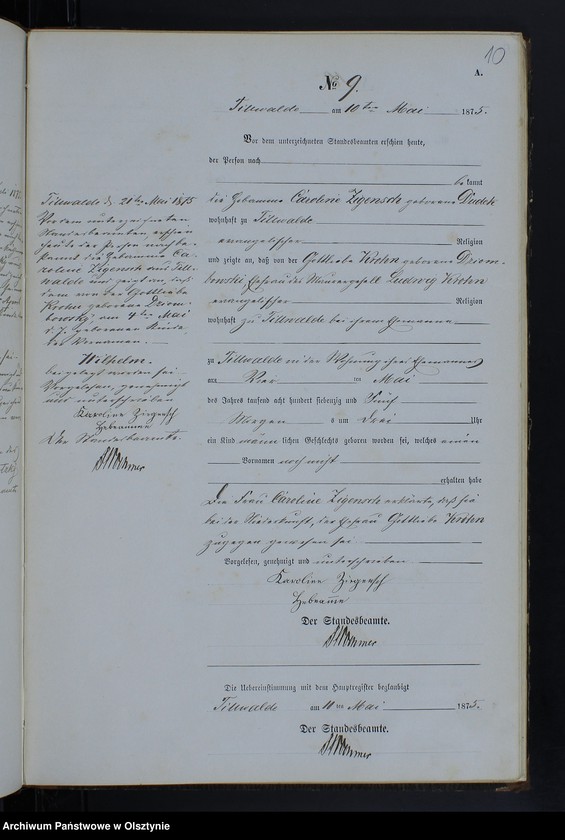 10
A.
No 9.
Tillwalde am 10ten Mai 1875.
Vor dem unterzeichneten Standesbeamten erschien heute,
der Person nach
bekannt
die Hebamme Caroline Zigensch geborene Dudek
wohnhaft zu Tillwalde
evangelischer Religion
und zeigte an, daß von der Gottliebe Krohn geborene Dziem-
bowski Ehefrau des Maurergesell Ludwig Krohn
evangelischer Religion
wohnhaft zu Tillwalde bei ihrem Ehemanne
zu Tillwalde in der Wohnung ihres Ehemannes
am Vier ten Mai
des Jahres tausend acht hundert siebenzig und Fünf
Morgens um Drei Uhr
ein Kind männlichen Geschlechts geboren worden sei, welches einen
Vornamen noch nicht
erhalten habe
Die Frau Caroline Zigensch erklärte, daß sie
bei der Niederkunft, der Ehefrau Gottliebe Krohn
zugegen gewesen sei
Vorgelesen, genehmigt und unterschrieben
Karoline Ziegensch
Hebamme
Der Standesbeamte.
Die Uebereinstimmung mit dem Hauptregister beglaubigt
Tillwalde am 10ten Mai 1875.
Der Standesbeamte.
Tillwalde d. 21ten Mai 1875
Vor dem unterzeichneten
Standesbeamten erschien
heute der Person nach be-
kannt die Hebamme Ca-
roline Zigensch aus Till-
walde und zeigt an, daß
dem von der Gottliebe
Krohn geborene Dziem-
bowski, am 4ten Mai
d. J. geborenen Kinde
der Vornamen
Wilhelm
beigelegt worden sei.
Vorgelesen, genehmigt
und unterschrieben
Karoline Ziegensch
Hebamme
Der Standesbeamte.
Archiwum Państwowe w Olsztynie